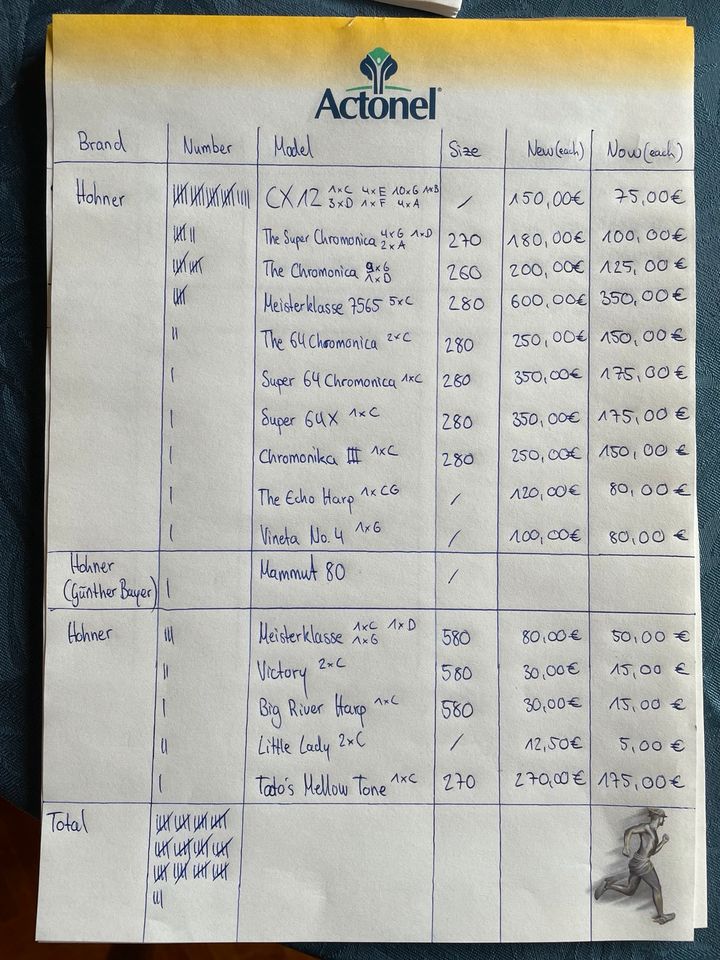 Actonel®
Brand Number Model Size New(each) Now(each)
Hohner 卌卌卌卌IIII CX12 1xC 4xE 10xG 1xB / 150,00€ 75,00€
3xD 1xF 4xA
卌II The Super Chromonica 4xG 1xD 270 180,00€ 100,00€
2xA
卌卌 The Chromonica 9xG 260 200,00€ 125,00€
1xD
卌 Meisterklasse 7565 5xC 280 600,00€ 350,00€
II The 64 Chromonica 2xC 280 250,00€ 150,00€
I Super 64 Chromonica 1xC 280 350,00€ 175,00€
I Super 64X 1xC 280 350,00€ 175,00€
I Chromonika III 1xC 280 250,00€ 150,00€
I The Echo Harp 1xCG / 120,00€ 80,00€
I Vineta No. 4 1xG / 100,00€ 80,00€
Hohner Mammut 80 /
(Günther Bayer) I
Hohner III Meisterklasse 1xC 1xD 580 80,00€ 50,00€
1xG
II Victory 2xC 580 30,00€ 15,00€
I Big River Harp 1xC 580 30,00€ 15,00€
II Little Lady 2xC / 12,50€ 5,00€
I Toto's Mellow Tone 1xC 270 270,00€ 175,00€
Total 卌卌卌卌
卌卌卌卌
卌卌卌卌
III